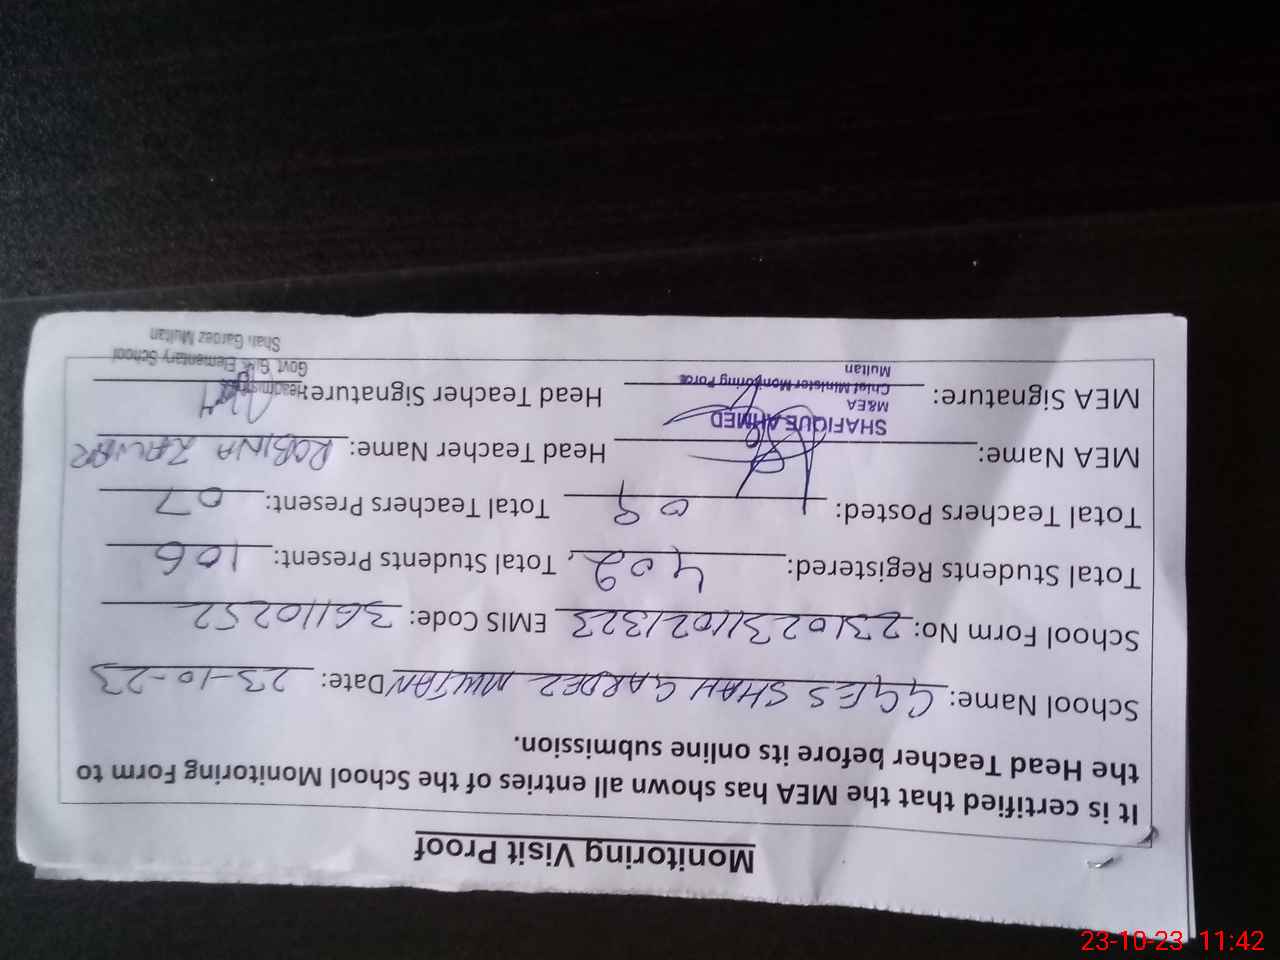 Monitoring Visit Proof
It is certified that the MEA has shown all entries of the School Monitoring Form to
the Head Teacher before its online submission.
School Name: GGES SHAH GARDEZ MULTAN Date: 23-10-23
School Form No: 23102311021323 EMIS Code: 36110252
Total Students Registered: 402, Total Students Present: 106
Total Teachers Posted: 09 Total Teachers Present: 07
MEA Name: Head Teacher Name: ROBINA
SHAFIQUE AHMED
M&EA
Chief Minister Monitoring Force
Multan
MEA Signature: Head Teacher Signature:
Headmistress
Govt. Elementary School
Shah Gardez Multan
23-10-23 11:42